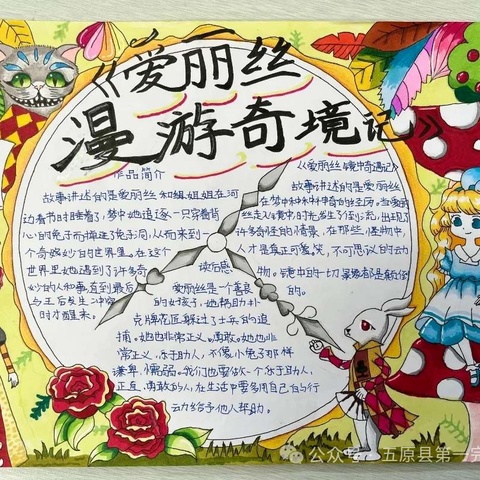 《爱丽丝
漫游奇境记》
作品简介
故事讲述的是爱丽丝和姐姐在河
动着书时睡着了,梦中她追逐一只穿着背
心的兔子而掉进兔子洞,从而来到一
个奇妙的世界里。在这个
世界里她遇到了许多奇
妙的人和事直到最后
与王后发生冲突
时才醒来。
《爱丽丝镜中奇遇记》
故事讲述的是爱丽丝
在梦中种种神奇的经历。当爱丽
丝走入镜中时先发生了怪到流,出现了
许多奇怪的情景,在那些怪物中,
人才是真正可笑、不可思议的动
物。镜中的一切景象都是颠倒
的。
读后感
爱丽丝是一个善良
的好孩子,她帮助扑
克牌花匠躲过了士兵的追
捕。她也非常正义、勇敢。她也非
常正义,乐于助人,不像小兔子那样
谦卑、懦弱。我们也要做一个乐于助人、
正直、勇敢的人,在生活中要多用自己的行
动给予他人帮助。
公众号·五原县第一完